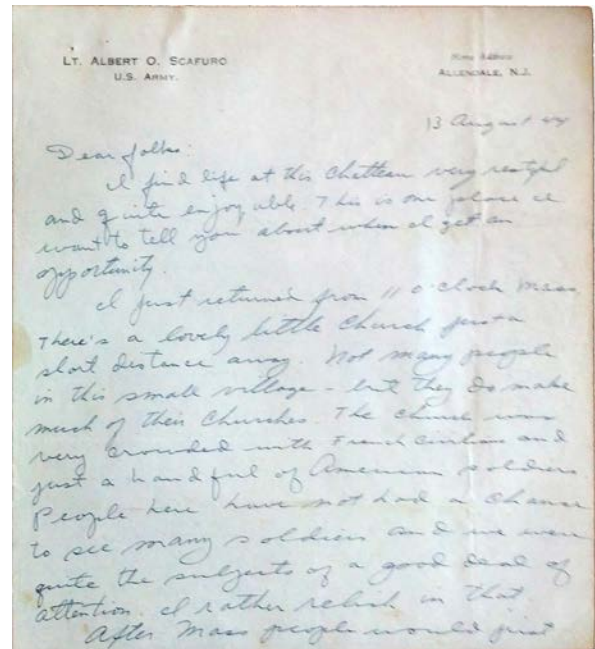 LT. ALBERT O. SCAFURO
U.S. ARMY.
Home Address
ALLENDALE, N.J.
13 August 44
Dear folks:
I find life at this Chatteau very restful
and quite enjoyable. This is one place I
want to tell you about when I get an
opportunity.
I just returned from 11 o'clock Mass.
There's a lovely little church just a
short distance away. Not many people
in this small village - but they do make
much of their churches. The church was
very crowded with French civilians and
just a handful of American soldiers
People here have not had a chance
to see many soldiers and we were
quite the subjects of a good deal of
attention. I rather relish in that.
After Mass people would just